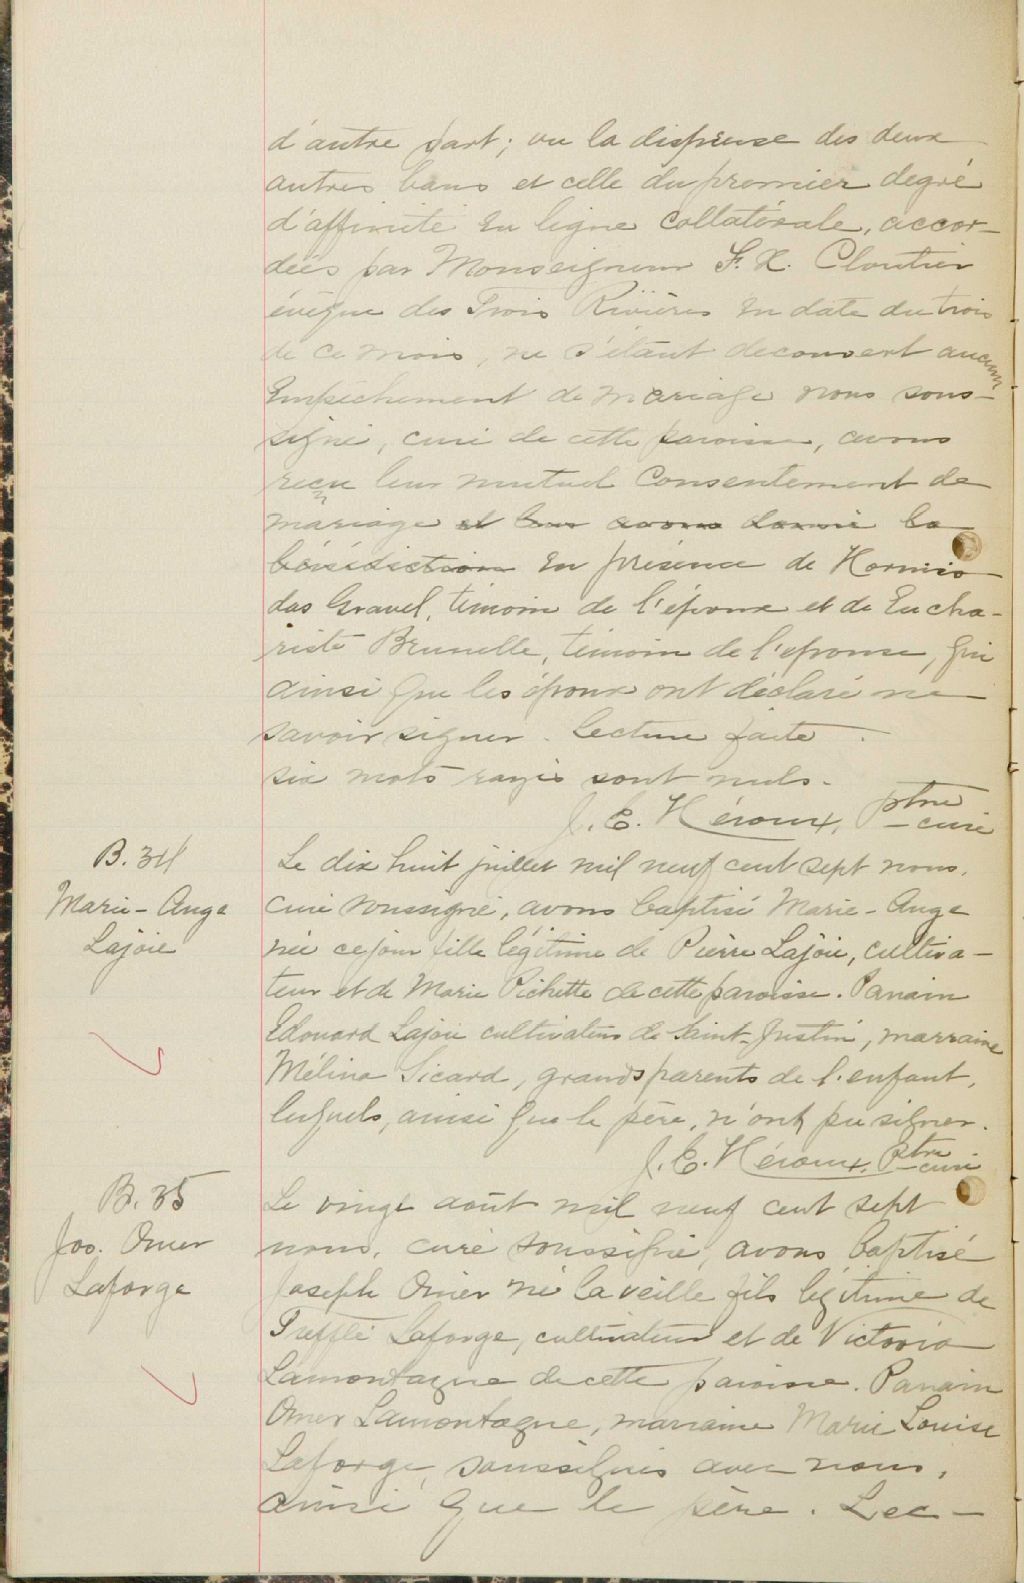 d'autre part; vu la dispense des deux
autres bans et celle du premier degré
d'affinité en ligne collatérale, accor-
dées par Monseigneur F. X. Cloutier
évêque des Trois Rivières en date du trois
de ce mois, ne s'étant decouvert aucun
empêchement de mariage nous sous-
signé, curé de cette paroisse, avons
reçu leur mutuel consentement de
mariage et leur avons donné la
bénédiction en présence de Hormis
das Gravel, témoin de l'époux et de Eucha-
riste Brunelle, témoin de l'epouse, qui
ainsi que les époux ont déclaré ne
savoir signer. Lecture faite.
six mots rayés sont nuls.
J. E. Héroux, Ptre
curé
B. 34
Marie-Ange
Lajoie
Le dix huit juillet mil neuf cent sept nous,
curé soussigné, avons baptisé Marie-Ange
née ce jour fille légitime de Pierre Lajoie, cultiva-
teur et de Marie Pichette de cette paroisse. Parrain
Edouard Lajoie cultivateur de Saint-Justin, marraine
Mélina Sicard, grands parents de l'enfant,
lesquels, ainsi que le père, n'ont pu signer.
J. E. Héroux, Ptre
curé
B. 35
Jos. Omer
Laforge
Le vingt août mil neuf cent sept
nous, curé soussigné, avons baptisé
Joseph Omer né la veille fils légitime de
Trefflé Laforge, cultivateur et de Victoria
Lamontagne de cette paroisse. Parrain
Omer Lamontagne, marraine Marie Louise
Laforge, soussignés avec nous,
ainsi que le père. Lec-